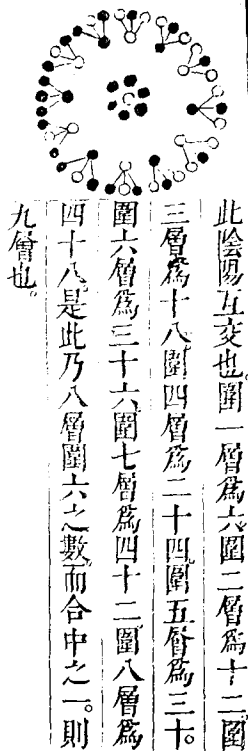 此陰陽互交也。圍一層爲六。圍二層爲十二。圍
三層爲十八。圍四層爲二十四。圍五層爲三十。
圍六層爲三十六。圍七層爲四十二。圍八層爲
四十八。是此乃八層圍六之數。而合中之一。則
九層也。